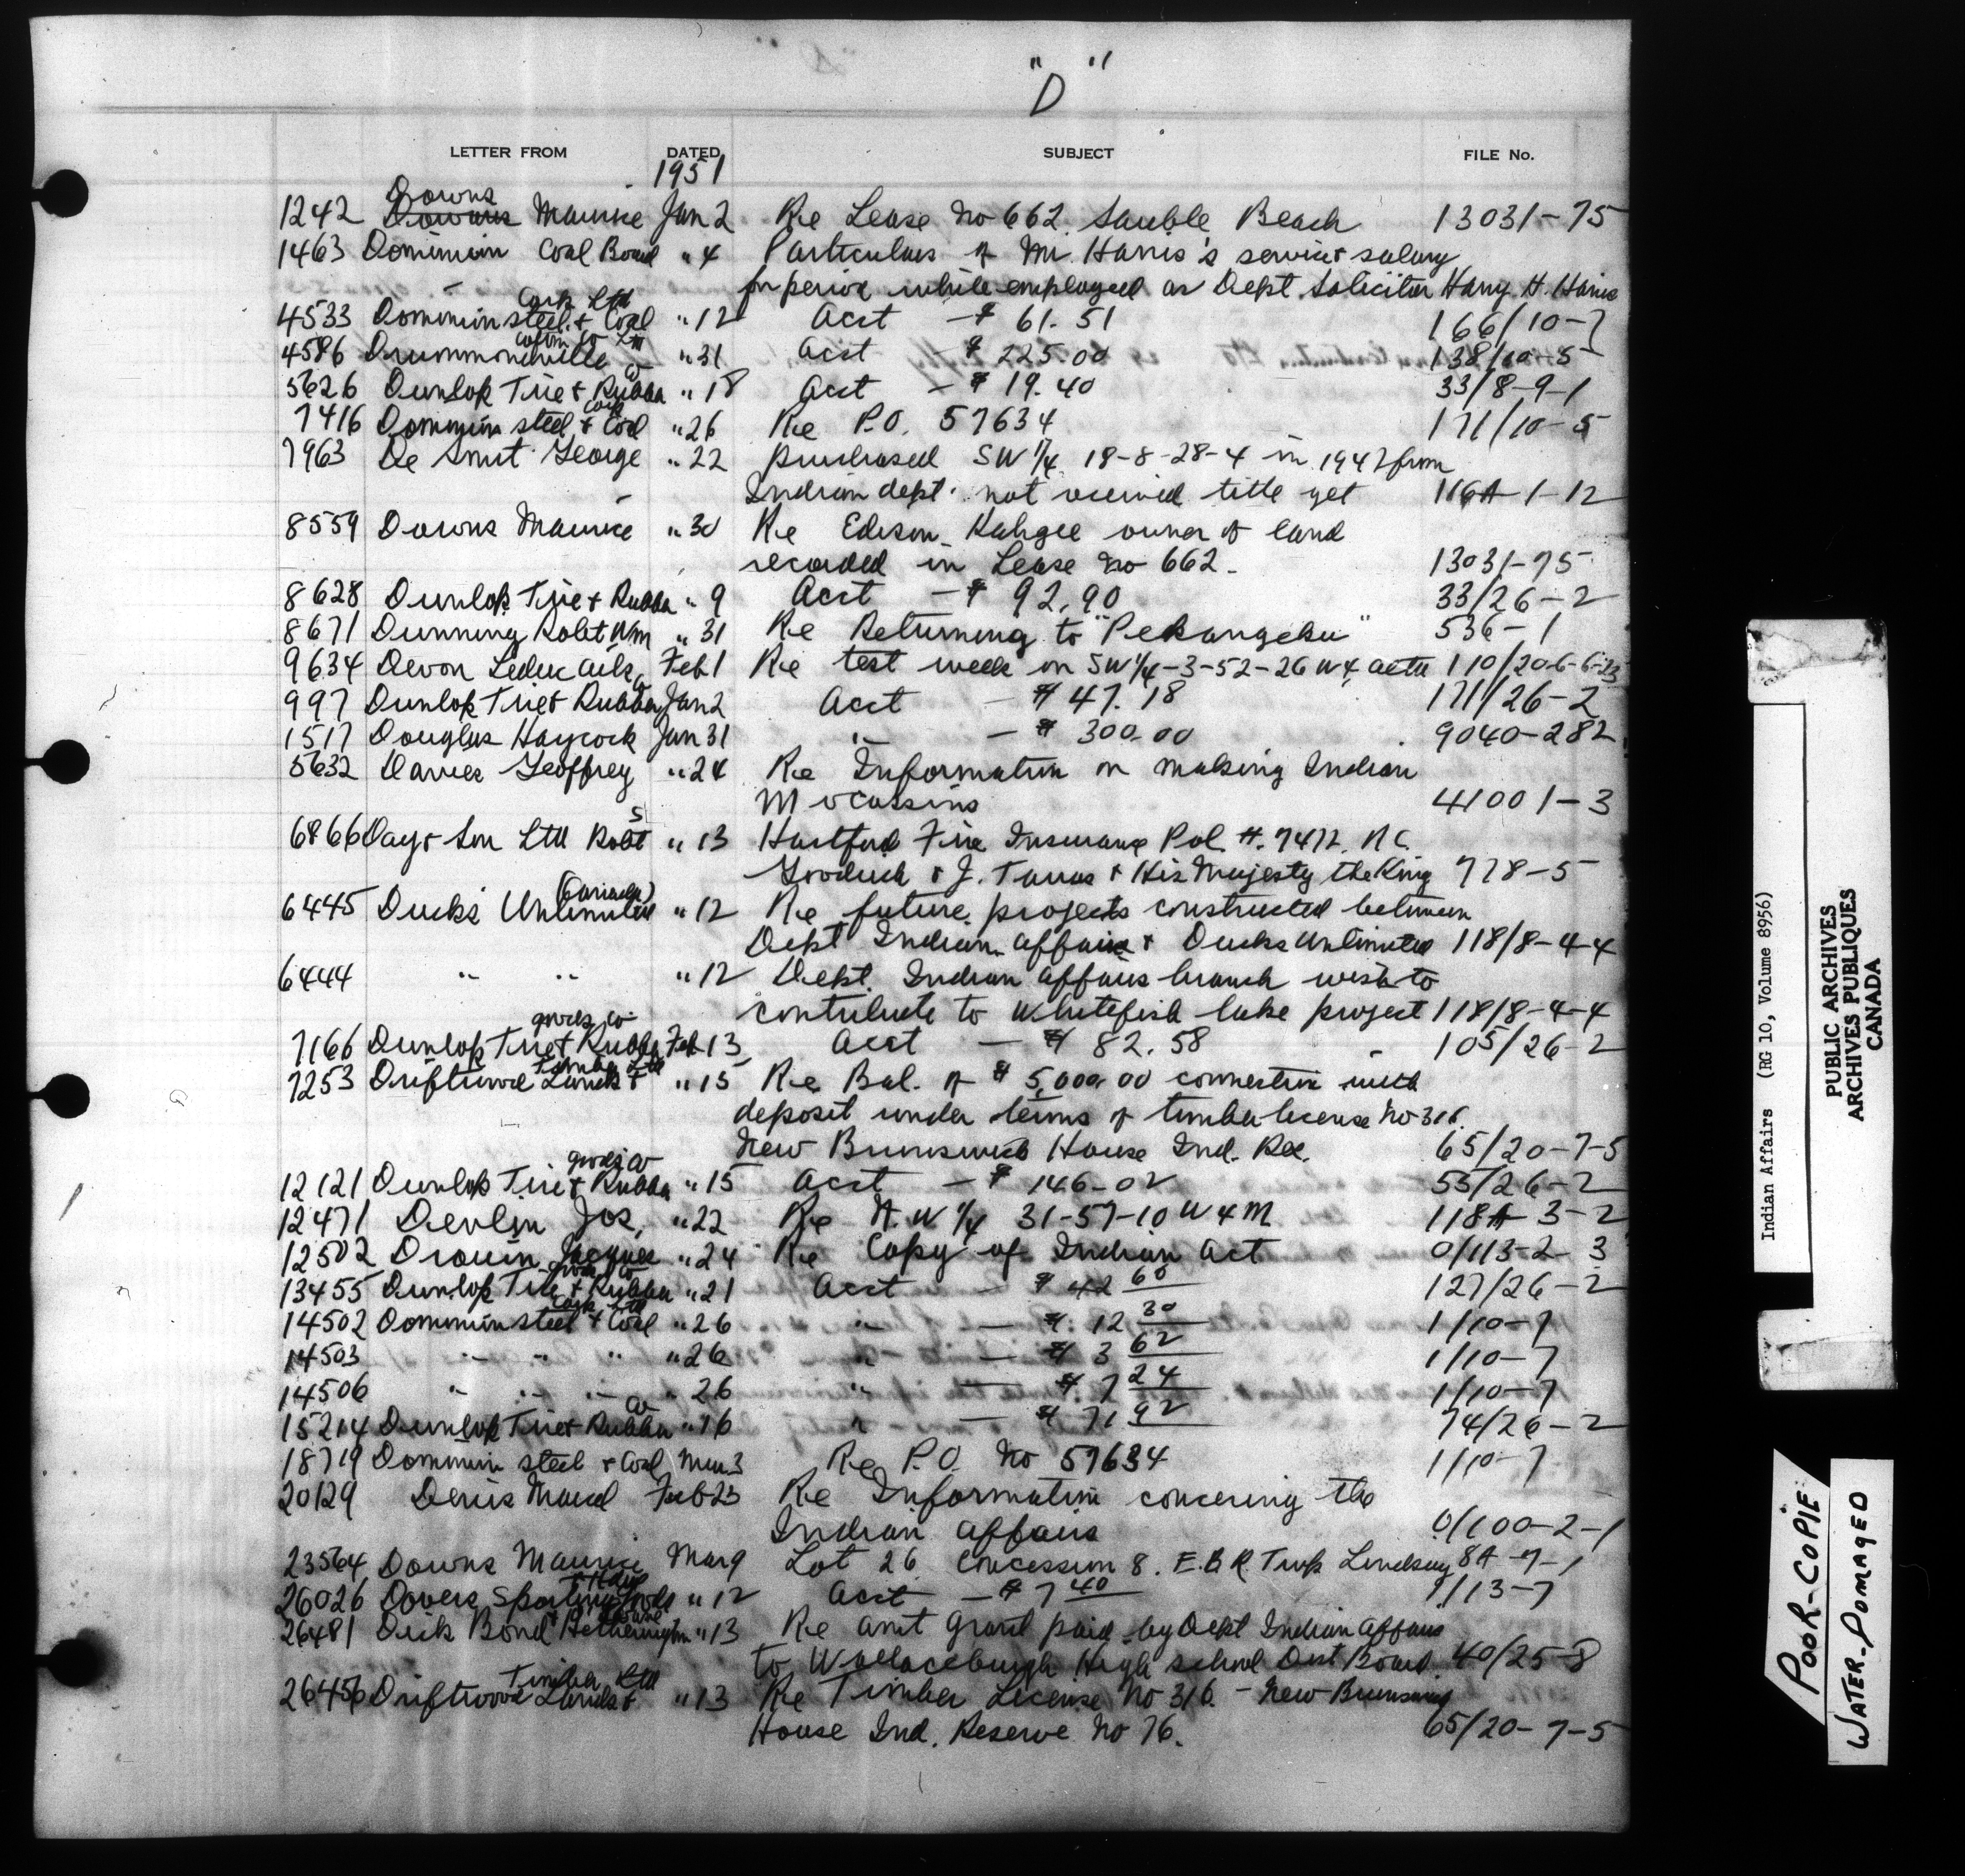 "D"
LETTER FROM DATED SUBJECT FILE No.
1951
Downs
1242 Maurice Jan 2 Re Lease No 662. Sauble Beach 13031-75
1463 Dominion Coal Board " 4 Particulars of Mr. Harris's service & salary
for period while employed as Dept Solicitor Harry H. Harris
Corp Ltd
4533 Dominion Steel & Coal " 12 Acct - $ 61.51 166/10-7
Cotton Co Ltd
4586 Drummondville " 31 Acct $ 225.00 138/10-5
Co
5626 Dunlop Tire & Rubber " 18 Acct - $ 19.40 33/8-9-1
Corp
7416 Dominion Steel & Coal " 26 Re P.O. 57634 171/10-5
7963 De Smit George " 22 purchased SW 1/4 18-8-28-4 in 1947 from
Indian dept. not received title yet 116A-1-12
8559 Downs Maurice " 30 Re Edison Kahgee owner of land
recorded in Lease No 662. 13031-75
8628 Dunlop Tire & Rubber " 9 Acct - $ 92.90 33/26-2
8671 Dunning Robt Wm " 31 Re Returning to "Pekangeku" 536-1
9634 Devon Leduc Oils Feb 1 Re test well on SW 1/4-3-52-26 W4 110/20-6-6-23
997 Dunlop Tire & Rubber Jan 2 Acct - $ 47.18 171/26-2
1517 Douglas Haycock Jan 31 " - $ 300.00 9040-282
5632 Davies Geoffrey " 24 Re Information on making Indian
Moccassins 41001-3
S
6866 Day & Son Ltd Robt " 13 Hartford Fire Insurance Pol #. 7472. N.C.
& J. & His Majesty the King 778-5
(Canada)
6445 Ducks Unlimited " 12 Re future projects constructed between
Dept Indian Affairs & Ducks Unlimited 118/8-4-4
6444 " " " 12 Dept. Indian Affairs branch wish to
contribute to Whitefish lake project 118/8-4-4
goods Co
7166 Dunlop Tire & Rubber Feb 13 Acct - $ 82.58 105/26-2
Timber Ltd
7253 Driftwood Lands & " 15 Re Bal. of $ 5,000.00 connection with
deposit under terms of timber license No 316.
New Brunswick House Ind. Res. 65/20-7-5
goods Co
12121 Dunlop Tire & Rubber " 15 Acct - $ 146-02 55/26-2
12471 Devlin Jos. " 22 Re N.W 1/4 31-57-10 W4M 118A-3-2
12502 Drouin Jacques " 24 Re Copy of Indian Act 0/113-2-3
goods Co
13455 Dunlop Tire & Rubber " 21 Acct - $ 42 60 127/26-2
Corp Ltd
14502 Dominion Steel & Coal " 26 " - $ 12 30 1/10-7
14503 " " " " 26 " - $ 3 62 1/10-7
14506 " " " " 26 " - $ 7 24 1/10-7
Co
15214 Dunlop Tire & Rubber " 16 " - $ 71 92 74/26-2
18719 Dominion Steel & Coal Mar 3 Re P.O. No 57634 1/10-7
20129 Denis Marcel Feb 23 Re Information concering the
Indian Affairs 0/100-2-1
23564 Downs Maurice Mar 9 Lot 26 Concession 8. E.B.R. Twp Lindsay 8A-7-1
26026 Dovers Sporting goods " 12 Acct - $ 7 40 1/13-7
26481 Dick Bond & Hetherington " 13 Re amt Grant paid by Dept Indian Affairs
to Wallaceburgh High school Dist Board. 40/25-8
Timber Ltd
26456 Driftwood Lands & " 13 Re Timber License No 316. - New Brunswick
House Ind. Reserve No 76. 65/20-7-5
Indian Affairs (RG 10, Volume 8956)
PUBLIC ARCHIVES
ARCHIVES PUBLIQUES
CANADA
POOR-COPIE
WATER-DOMAGED